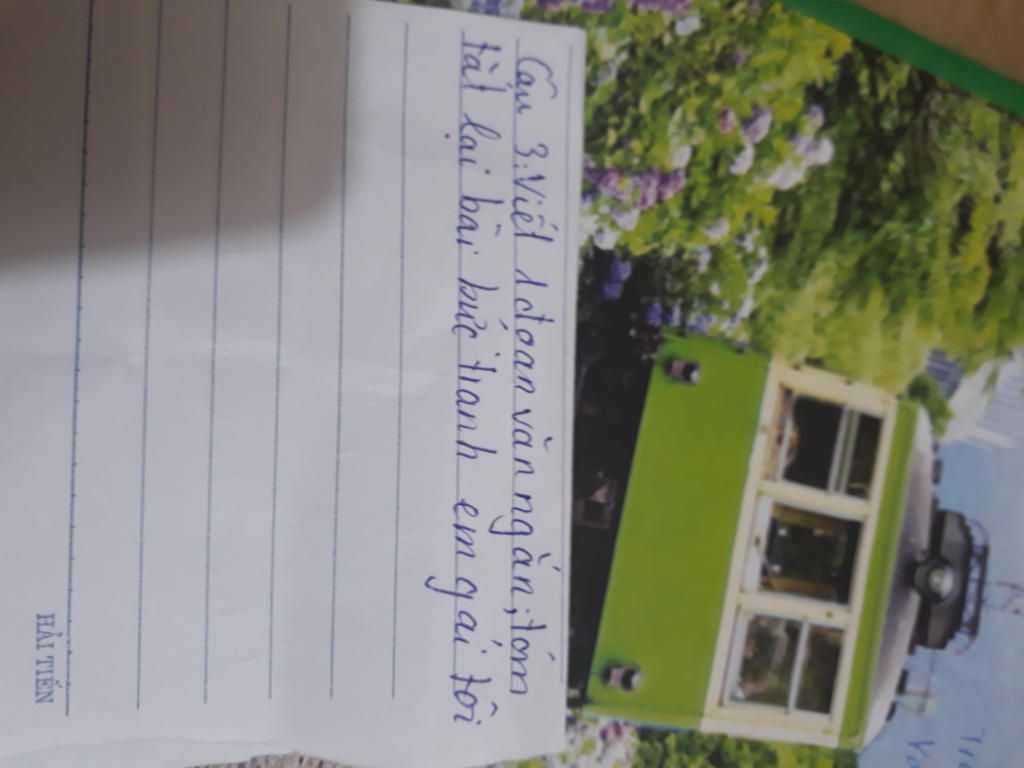 Câu 3: Viết 1 đoan văn ngắn, tóm
tắt lại bài bức tranh em gái tôi
HẢI TIẾN